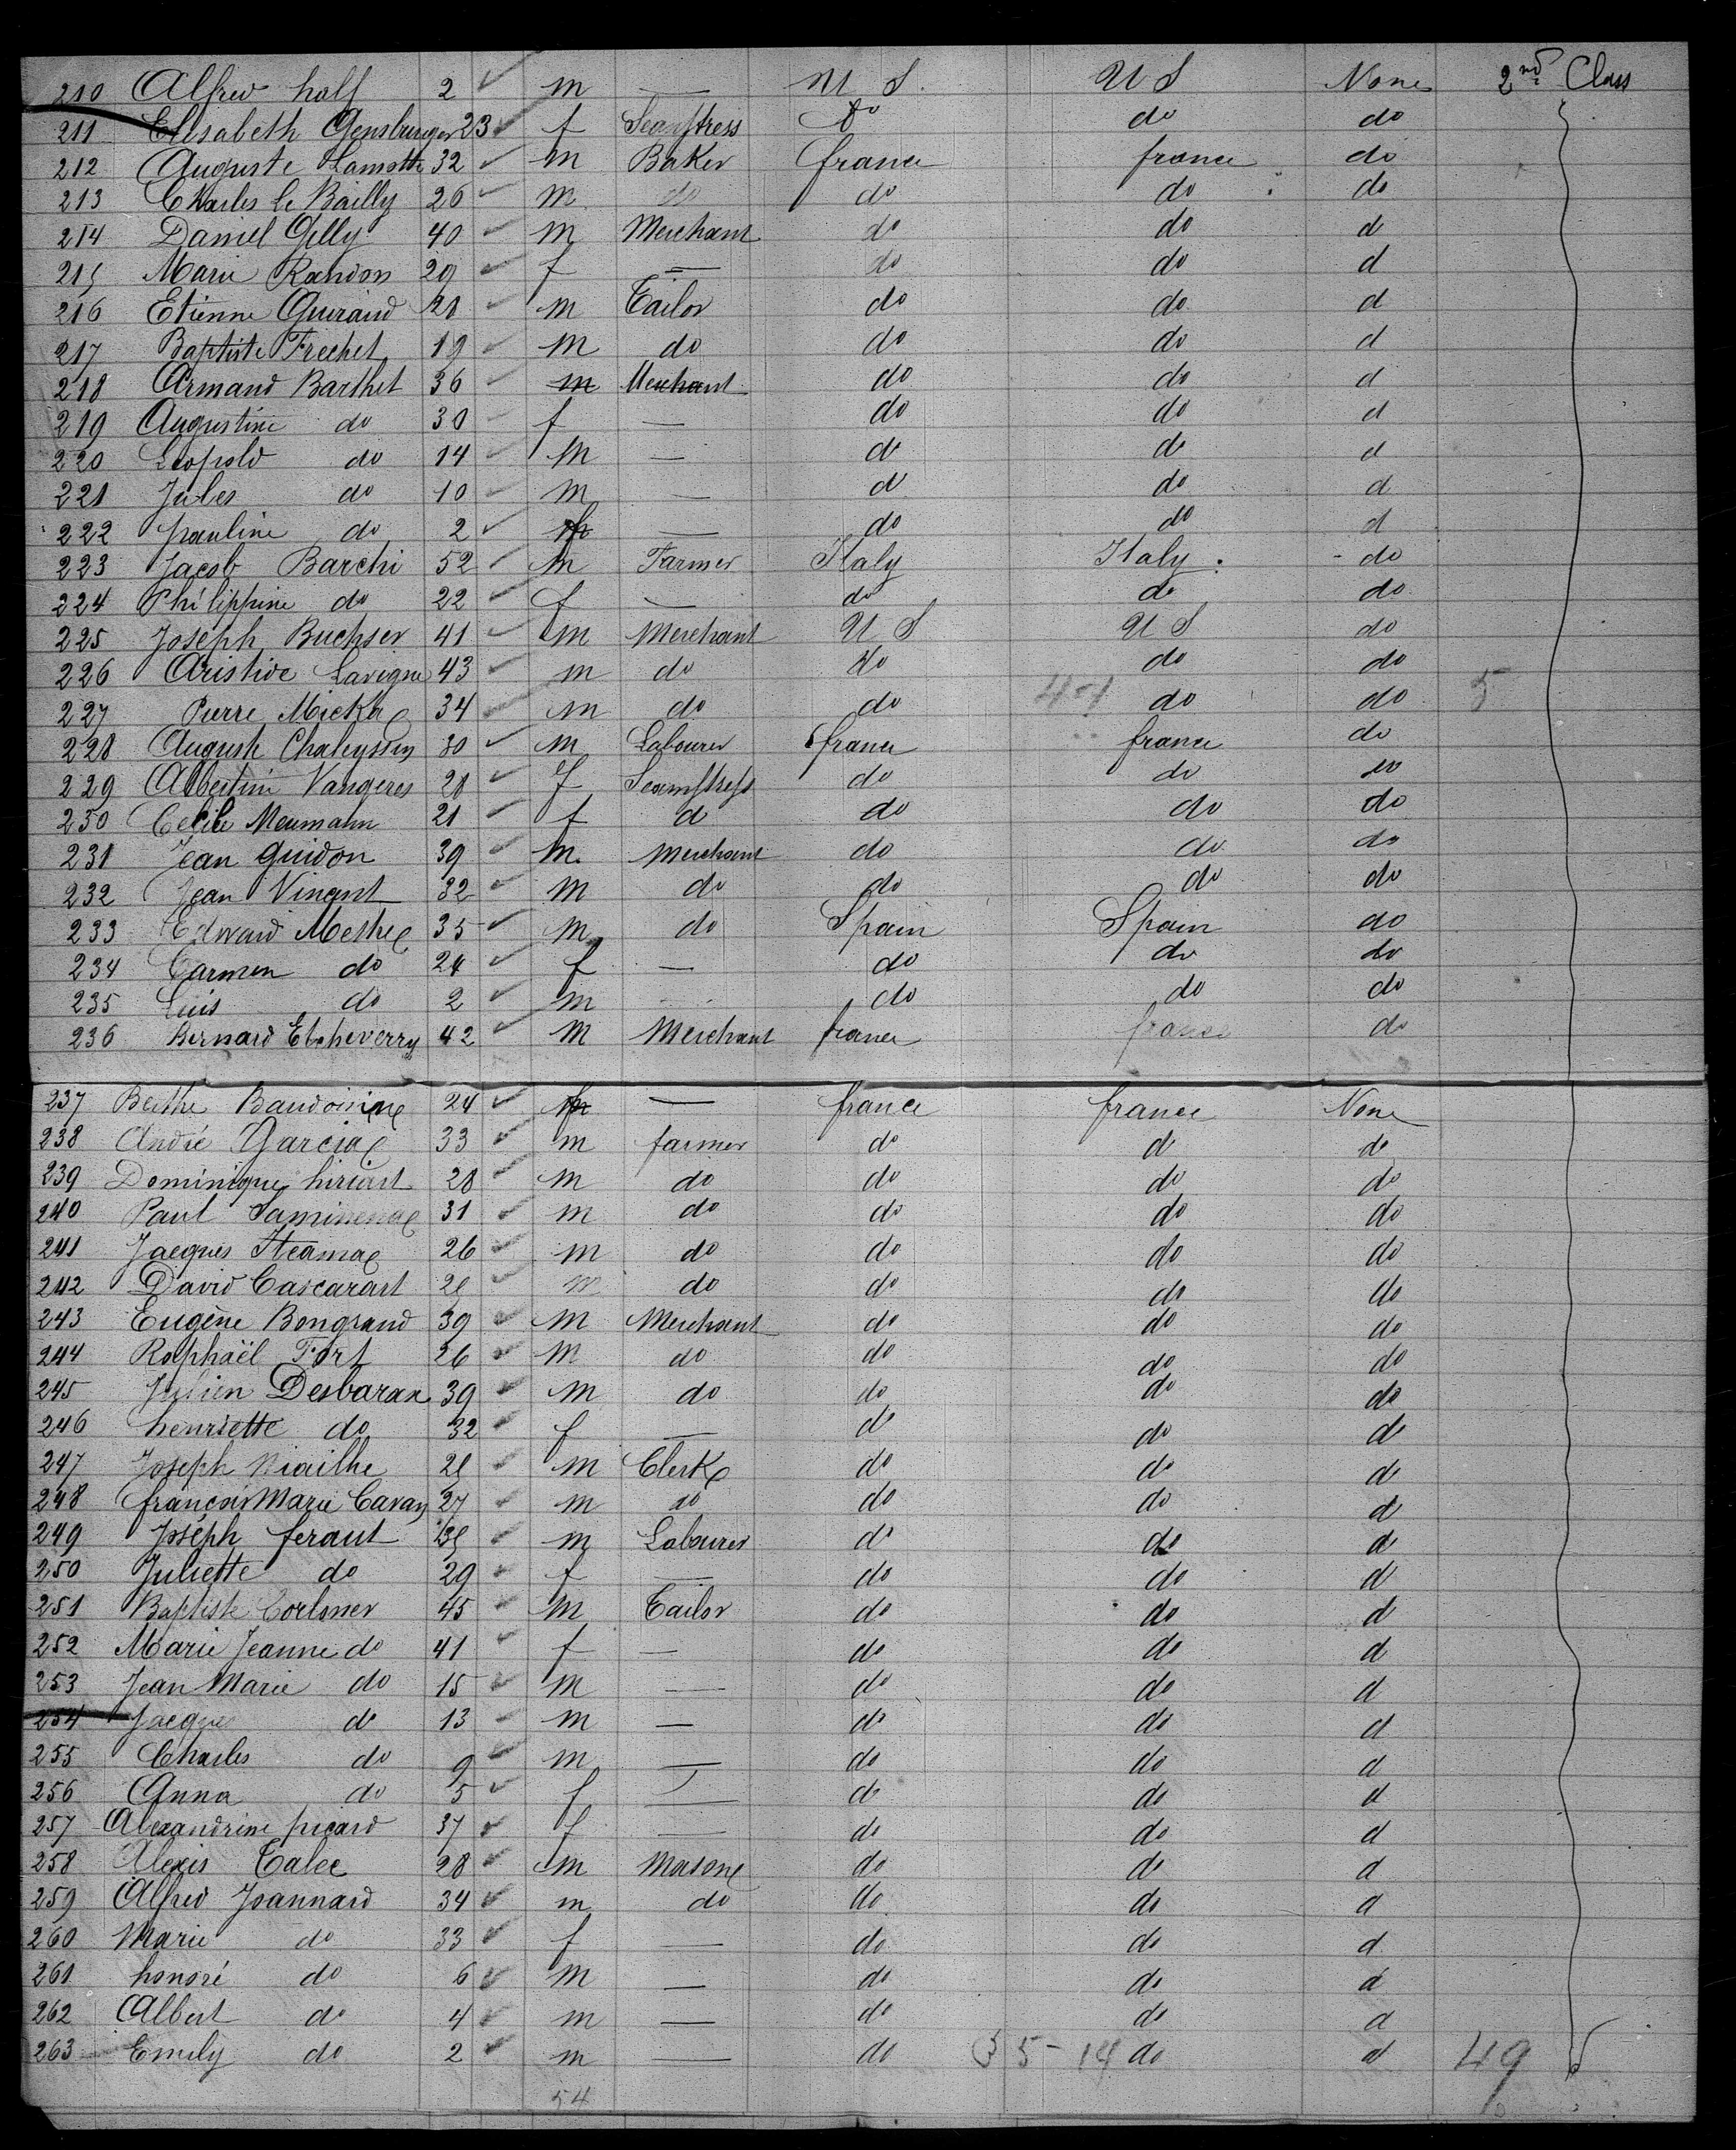 210 Alfred half 2 m — U S. U S None 2nd Class
211 Elisabeth Gensburger 23 f Seamstress do do do
212 Auguste Lamotte 32 m Baker france france do
213 Charles le Bailly 26 m do do do do
214 Daniel Gelly 40 m Merchant do do d
215 Marie Randon 29 f — do do d
216 Etienne Guiraud 28 m Tailor do do d
217 Baptiste Frechet 19 m do do do d
218 Armand Barthet 36 m Merchant do do d
219 Augustine do 30 f — do do d
220 Leopold do 14 m — d d d
221 Jules do 10 m — d do d
222 pauline do 2 f — do do d
223 Jacob Barchi 52 m Farmer Italy Italy do
224 Philippine do 22 f — do do do
225 Joseph Buchser 41 m Merchant U S U S do
226 Aristide Lavigne 43 m do do do do
227 Pierre Micka 34 m do do 4-1 do do 5
228 August Chaleyssin 30 m Labourer france france do
229 Albertine Vangeres 28 f Seamstress do do do
230 Cecile Meumann 21 f d do do do
231 Jean Guidon 39 m. Merchant do do do
232 Jean Vincent 32 m do do do do
233 Edward Mesthe 35 m do Spain Spain do
234 Carmen do 24 f — do do do
235 Luis do 2 m do do do
236 Bernard Etcheverry 42 m Merchant france france do
237 Berthe Baudoin 24 f — france france None
238 André Garcia 33 m farmer do d d
239 Dominique hiriart 28 m do do do do
240 Paul 31 m do do do do
241 Jacques 26 m do do do do
242 David Cascarart m do do do do
243 Eugène Bongrand 39 m Merchant do do do
244 Raphaël Fort 26 m do do do do
245 Julien Desbarax 39 m do do do do
246 henriette do 32 f — d do d
247 Joseph Viailhe m Clerk do do d
248 françois Marie Cavan 27 m do do do d
249 Joseph feraut m Labourer d do d
250 Juliette do 29 f — do do d
251 Baptiste Corlosser 45 m Tailor do do d
252 Marie Jeanne do 41 f — do do d
253 Jean Marie do 15 m — do do d
254 Jacques d 13 m — do do d
255 Charles do 9 m — do do d
256 Anna do 5 f — d do d
257 Alexandrine picard 37 f — do do d
258 Alexis Talec 28 m Mason do do d
259 Alfred Joannard 34 m do do do d
260 Marie do 33 f — do do d
261 honoré do 6 m — do do d
262 Albert do 4 m — do do d
263 Emily do 2 m — do 5-14 do d 49
54